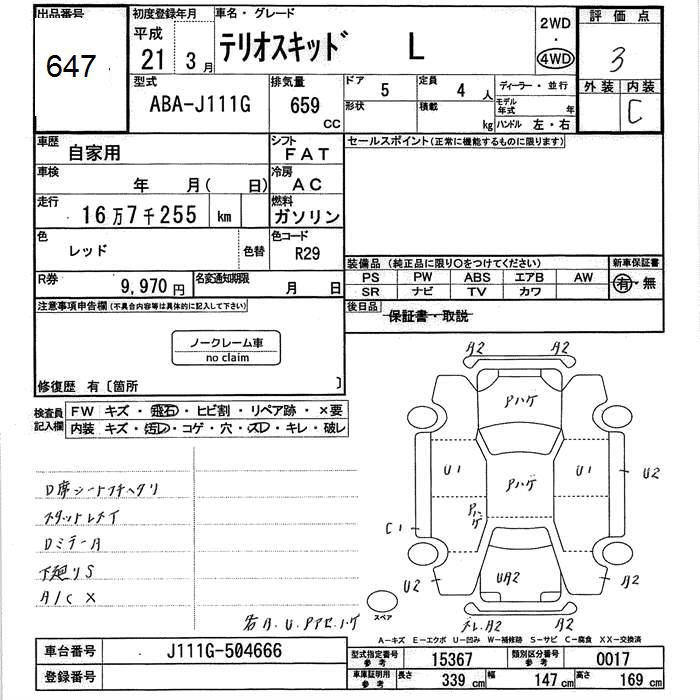 出品番号
647
初度登録年月
平成 21 3月
車名・グレード
テリオスキッド L
2WD
・
4WD
評価点
3
外装 内装
C
型式
ABA-J111G
排気量
659
CC
ドア 5
定員 4 人
形状
積載 kg
ディーラー・並行
モデル年式 年
ハンドル 左・右
車歴
自家用
シフト
FAT
車検
年 月( 日)
冷房
AC
走行
16万7千255 km
燃料
ガソリン
色
レッド
色替
色コード
R29
R券
9,970円
名変通知期限
月 日
セールスポイント(正常に機能するものに限ります)
装備品(純正品に限り○をつけてください)
新車保証書
PS PW ABS エアB AW
有・無
SR ナビ TV カワ
後日品
保証書・取説
注意事項申告欄(不具合内容等は具体的に記入して下さい)
ノークレーム車
no claim
修復歴 有〔箇所 〕
検査員記入欄
FW キズ・飛石・ヒビ割・リペア跡・×要
内装 キズ・汚レ・コゲ・穴・スレ・キレ・破レ
D席シートフチヘタリ
Dミラー A
下廻りS
A/C X
A2 A2
Pハゲ
U1 Pハゲ U1 U2
Pハゲ
C1
U2 UA2 A2
スペア
A2 A2
A-キズ E-エクボ U-凹み W-補修跡 S-サビ C-腐食 XX-交換済
車台番号
J111G-504666
登録番号
型式指定番号 参考
15367
類別区分番号 参考
0017
車庫証明用 参考
長さ 339 cm
幅 147 cm
高さ 169 cm